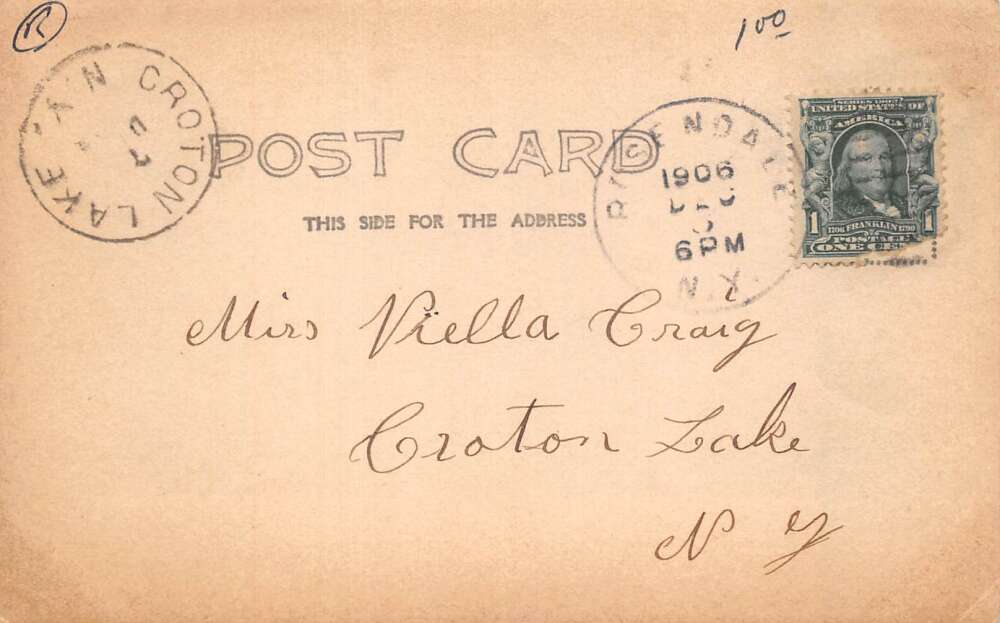 R
1 00
CROTON LAKE N.Y.
ROSENDALE
1906
DEC
6 PM
N.Y.
SERIES 1902
UNITED STATES OF
AMERICA
1 1
1706 FRANKLIN 1790
POSTAGE
ONE CENT
POST CARD
THIS SIDE FOR THE ADDRESS
Miss Viella Craig
Croton Lake
N Y